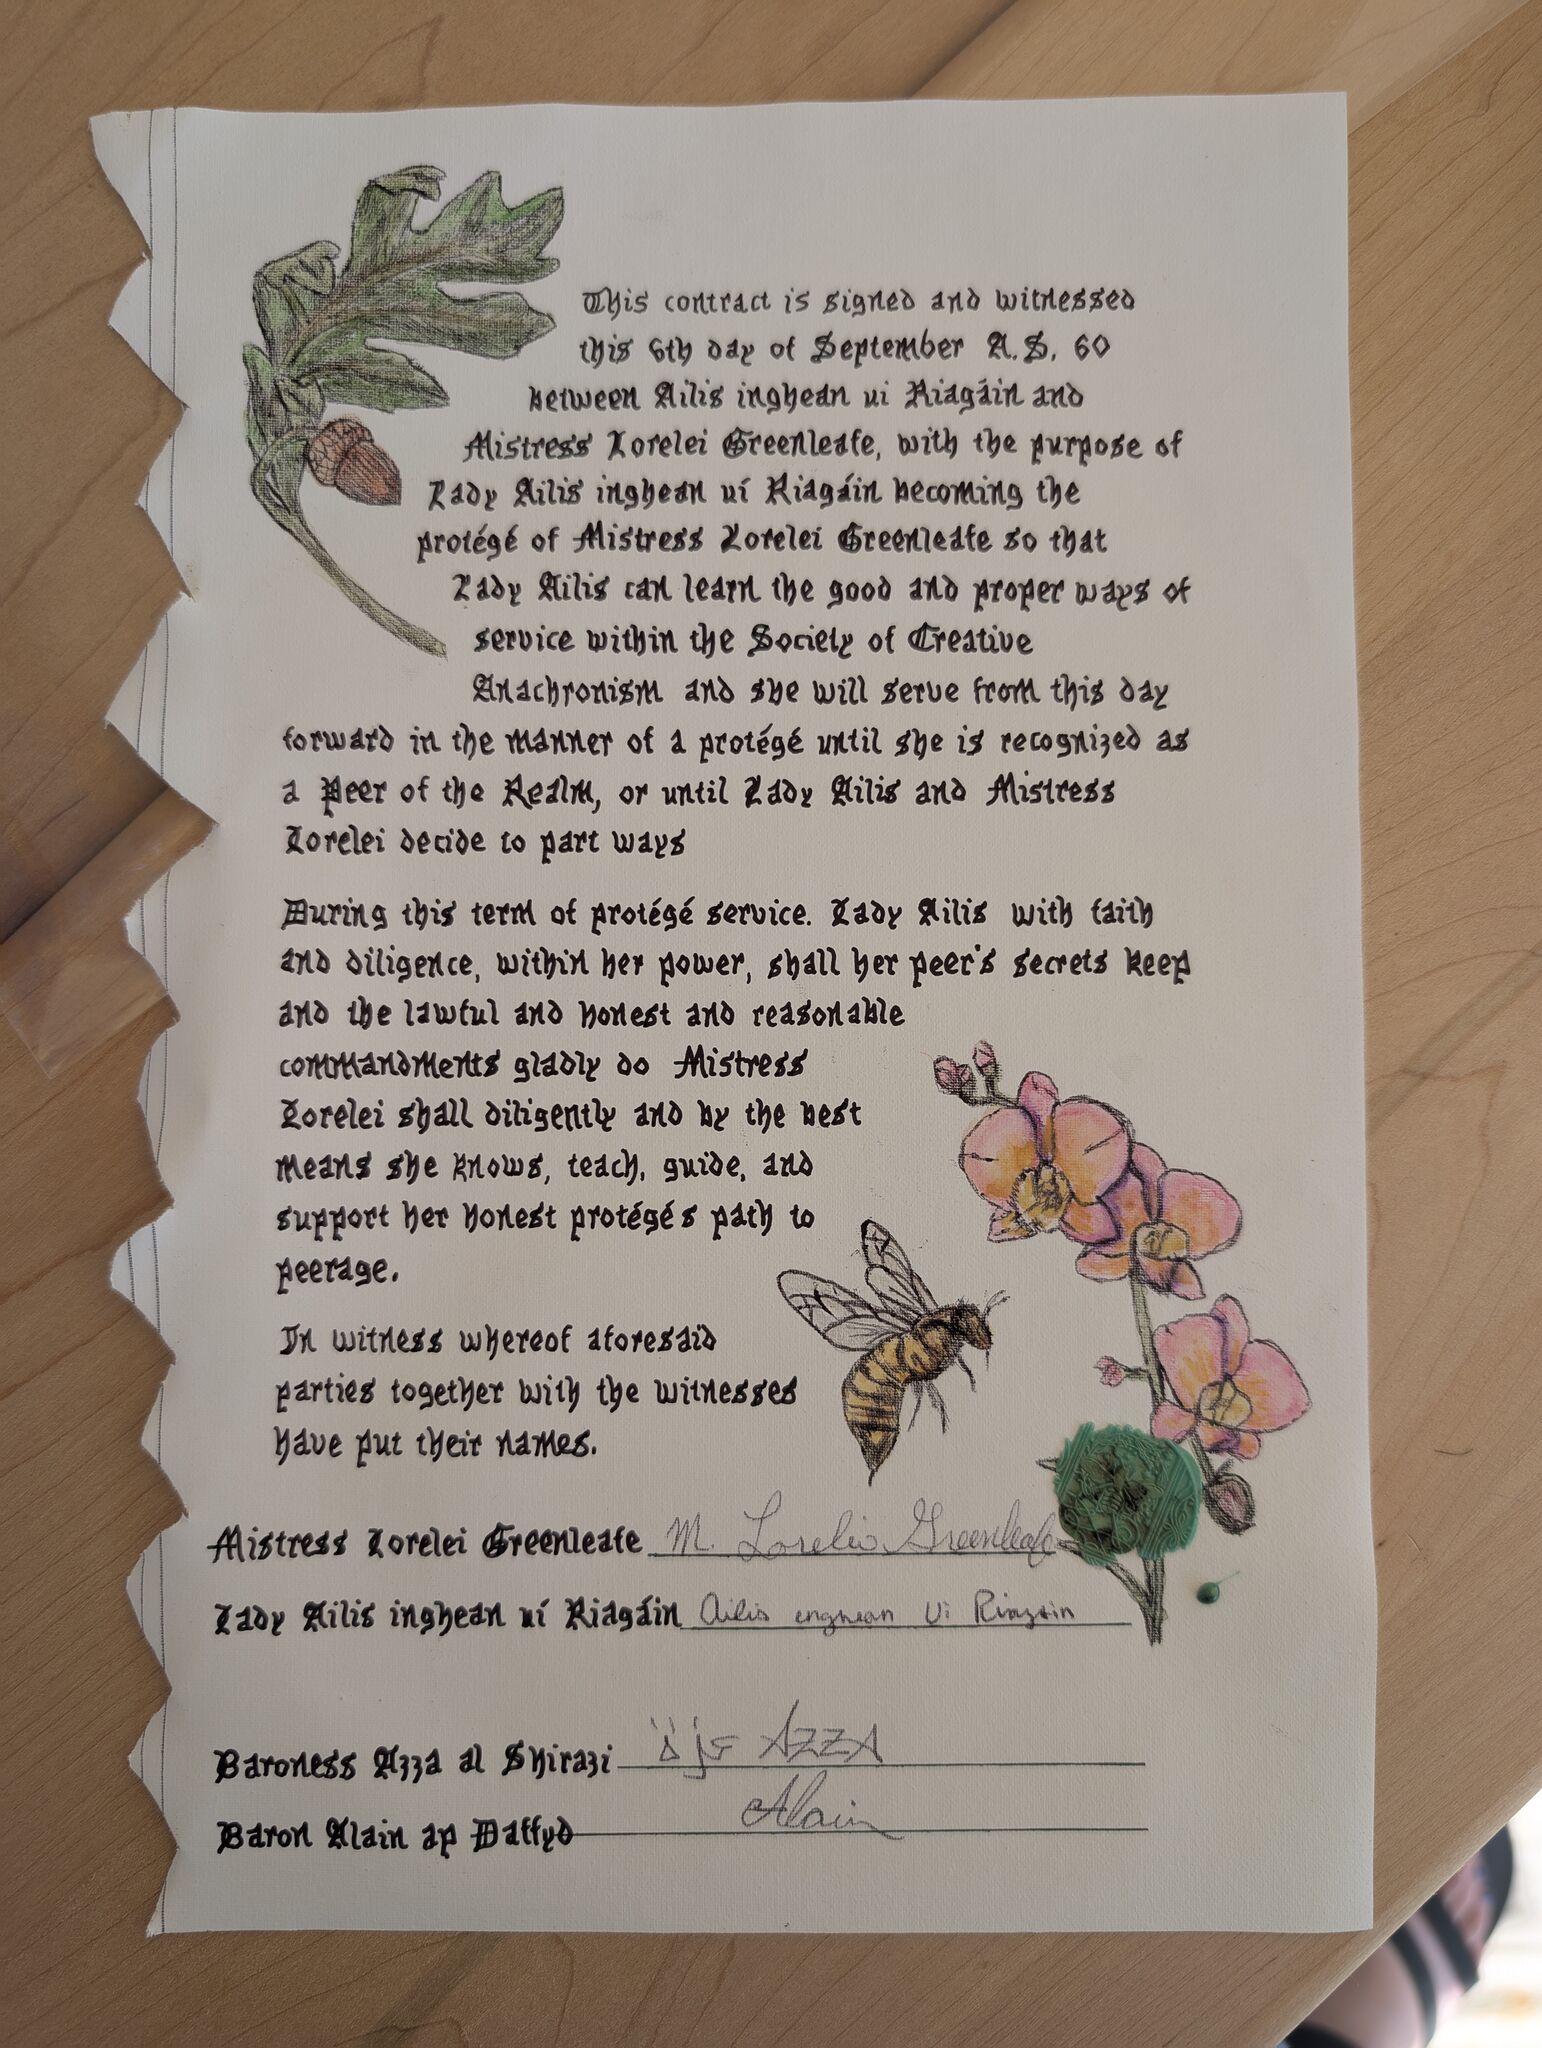 This contract is signed and witnessed
this 6th day of September A.S. 60
between Ailis inghean ui Riagáin and
Mistress Lorelei Greenleafe, with the purpose of
Lady Ailis inghean uí Riagáin becoming the
protégé of Mistress Lorelei Greenleafe so that
Lady Ailis can learn the good and proper ways of
service within the Society of Creative
Anachronism and she will serve from this day
forward in the manner of a protégé until she is recognized as
a Peer of the Realm, or until Lady Ailis and Mistress
Lorelei decide to part ways
During this term of protégé service. Lady Ailis with faith
and diligence, within her power, shall her peer's secrets keep
and the lawful and honest and reasonable
commandments gladly do Mistress
Lorelei shall diligently and by the best
means she knows, teach, guide, and
support her honest protégés path to
peerage.
In witness whereof aforesaid
parties together with the witnesses
have put their names.
Mistress Lorelei Greenleafe M. Lorelei Greenleafe
Lady Ailis inghean uí Riagáin Ailis inghean Ui Riagain
Baroness Azza al Shirazi AZZA
Baron Alain ap Daffyd Alain